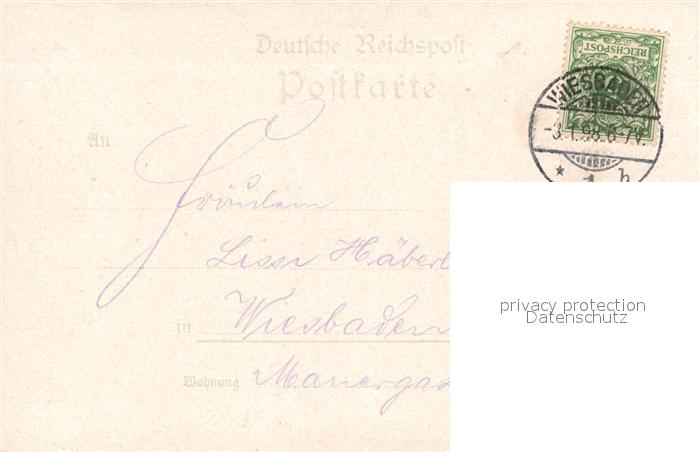 Deutsche Reichspost
Postkarte
REICHSPOST
WIESBADEN
-3.1.98.6-7V.
* 1 b
An
Fräulein
Lissi Häberl
in Wiesbaden
Wohnung Mauergas
privacy protection
Datenschutz